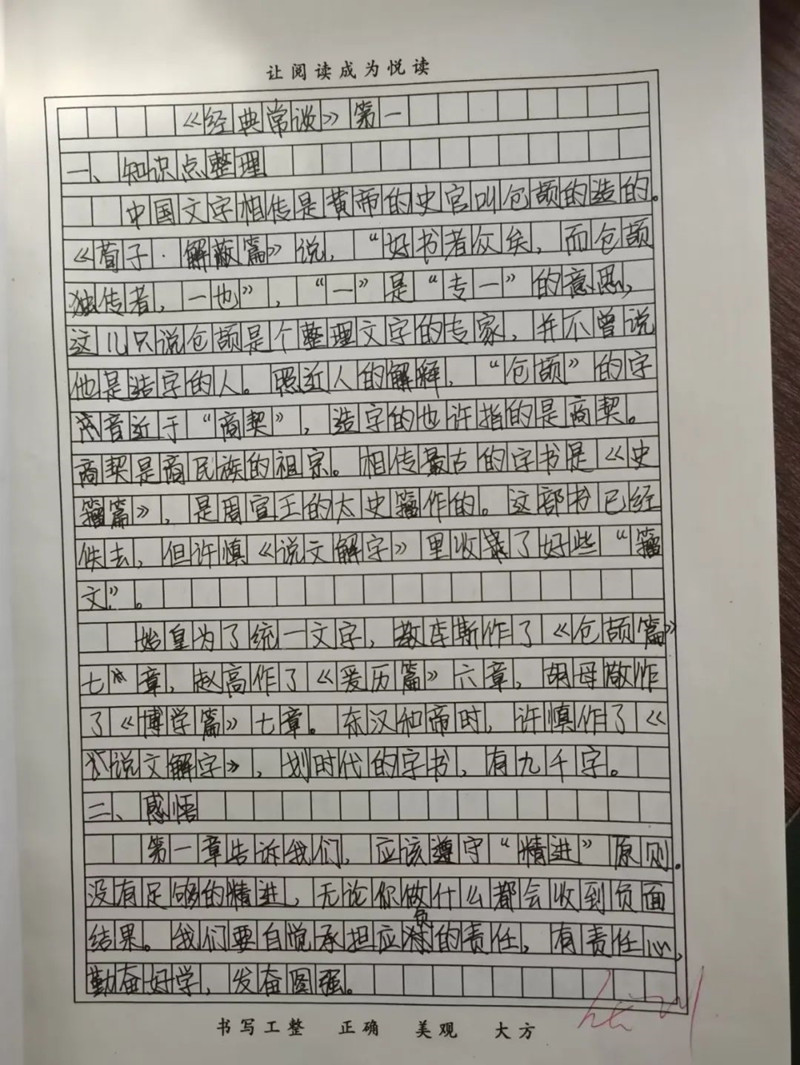 让阅读成为悦读
《经典常谈》第一
一、知识点整理
中国文字相传是黄帝的史官叫仓颉的造的。
《荀子·解蔽篇》说，“好书者众矣，而仓颉
独传者，一也”，“一”是“专一”的意思，
这儿只说仓颉是个整理文字的专家，并不曾说
他是造字的人。照近人的解释，“仓颉”的字
音近于“商契”，造字的也许指的是商契。
商契是商民族的祖宗。相传最古的字书是《史
籀篇》，是周宣王的太史籀作的。这部书已经
佚去，但许慎《说文解字》里收录了好些“籀
文”。
始皇为了统一文字，教李斯作了《仓颉篇》
七章，赵高作了《爰历篇》六章，胡母敬作
了《博学篇》七章。东汉和帝时，许慎作了《
说文解字》，划时代的字书，有九千字。
二、感悟
第一章告诉我们，应该遵守“精进”原则。
没有足够的精进，无论你做什么都会收到负面
结果。我们要自觉承担应负的责任，有责任心，
勤奋好学，发奋图强。
书写工整 正确 美观 大方